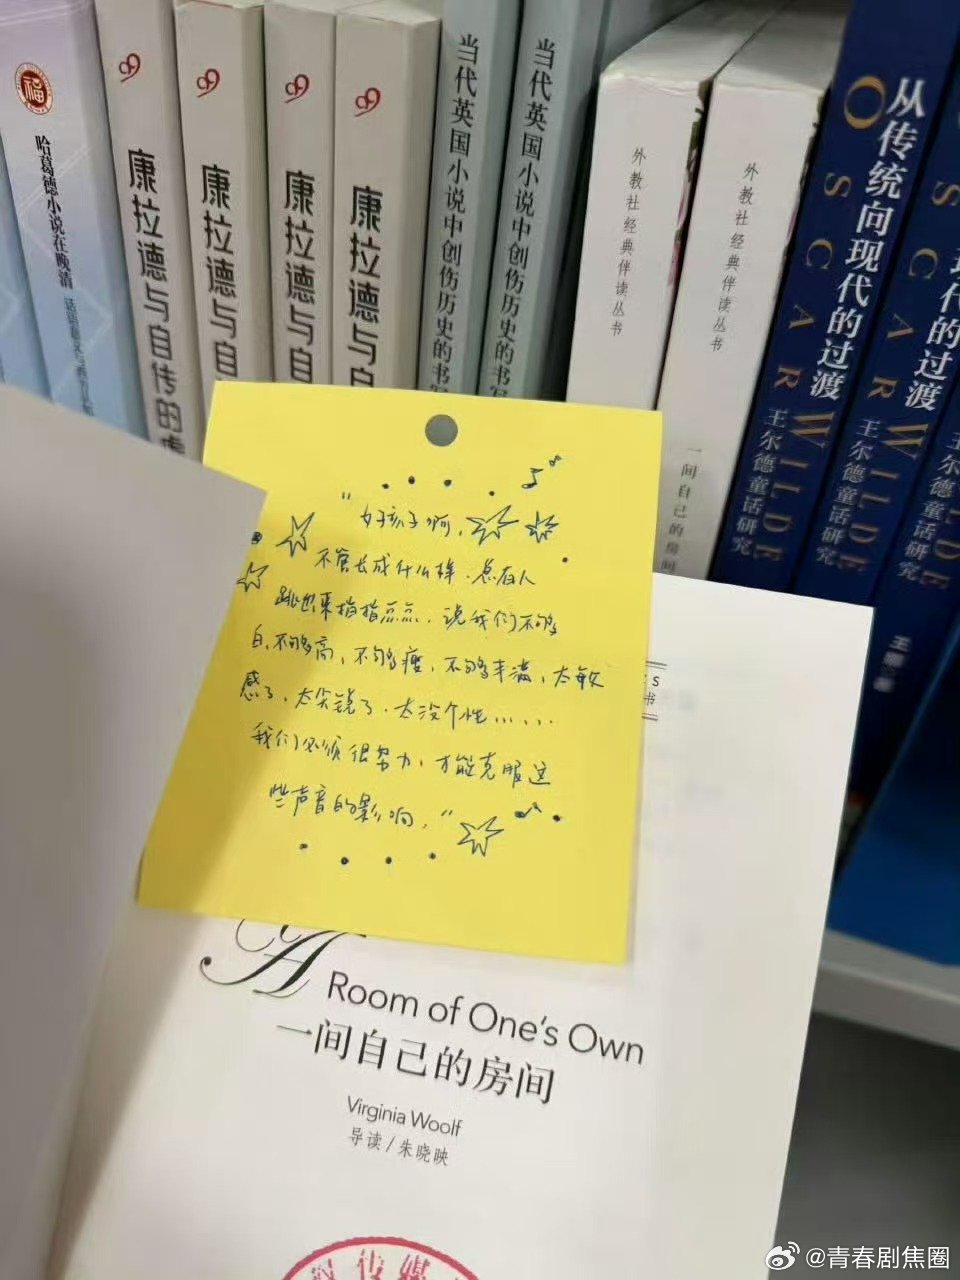 福
哈葛德小说在晚清
康拉德与自传的
康拉德与自
康拉德与自
康拉德与自
当代英国小说中创伤历史的书写
当代英国小说中创伤历史的书写
外教社经典伴读丛书
外教社经典伴读丛书
一间自己的房间
从传统向现代的过渡
王尔德童话研究
OSCAR WILDE
王
著
现代的过渡
王尔德童话研究
S CAR WILDE
“好孩子啊,
不管长成什么样,总有人
跳出来指指点点,说我们不够
白,不够高,不够瘦,不够丰满,太敏
感了,太尖锐了,太没个性......
我们必须很努力,才能克服这
些声音的影响,”
S
书
A Room of One's Own
一间自己的房间
Virginia Woolf
导读/朱晓映
传媒
@青春剧焦圈